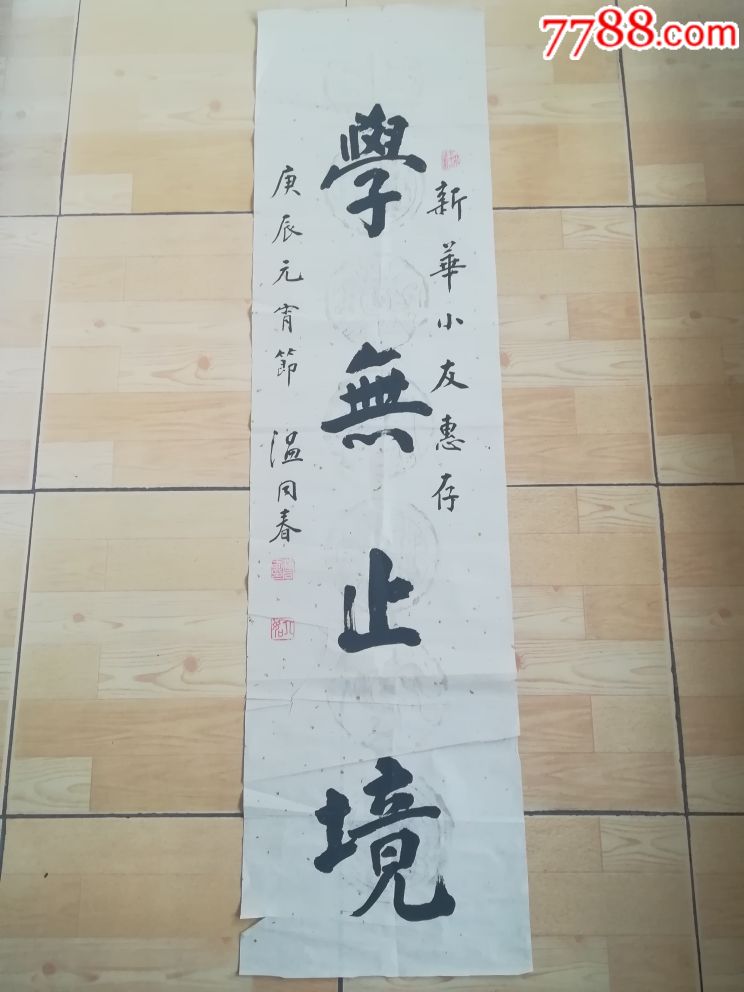 7788.com
新華小友惠存
學無止境
庚辰元宵節 溫同春